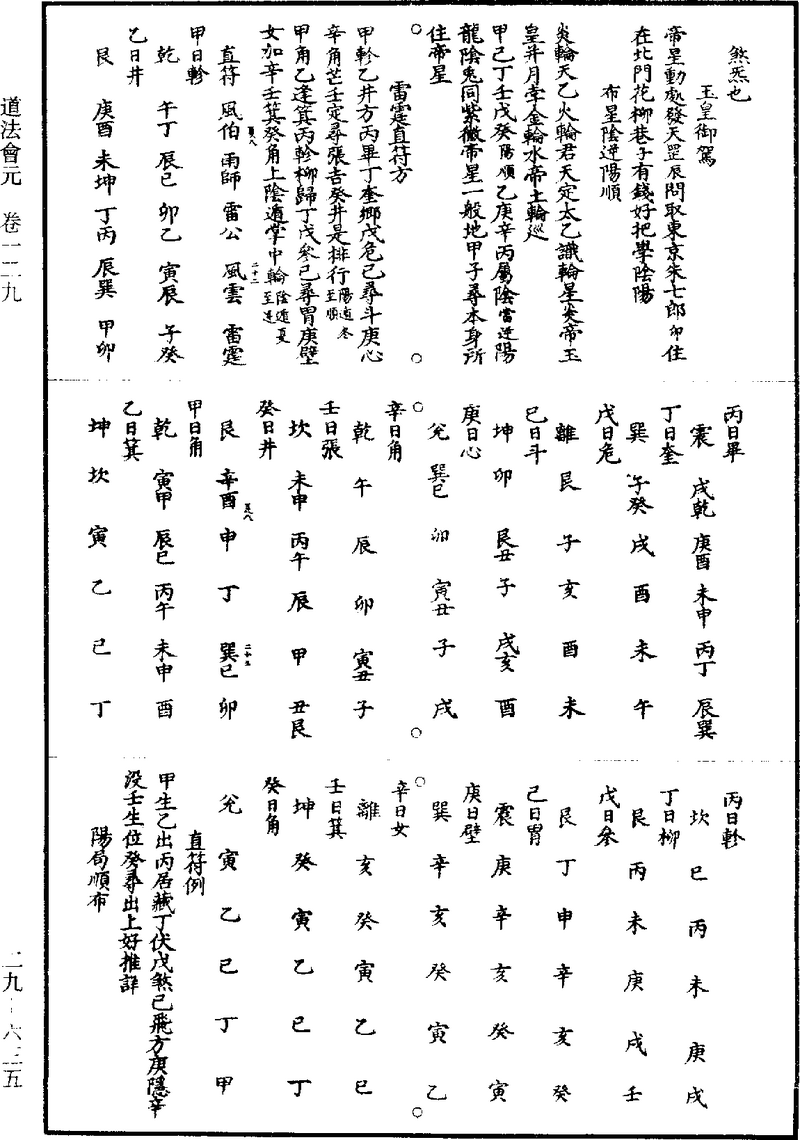 煞炁也
玉皇御駕
帝星動處發天罡辰問取東京朱七郎卯住
在北門花柳巷子有錢好把學陰陽
布星陰逆陽順
炎輪天乙火輪君天定太乙識輪星炎帝玉
皇并月孛金輪水帝土輪廵
甲己丁壬戊癸陽順乙庚辛丙屬陰當逆陽
龍陰兔同紫微帝星一般地甲子尋本身所
住帝星
雷霆直符方
甲軫乙井方丙畢丁奎鄉戊危己尋斗庚心
辛角芒壬定尋張吉癸井是排行陽遁冬至順
甲角乙逢箕丙軫柳歸丁戊參己尋胃庚壁
女加辛壬箕癸角上陰遁掌中輪陰遁夏至逆
直符 風伯 雨師 雷公 風雲 雷霆
甲日軫
乾 午丁 辰巳 卯乙 寅辰 午癸
乙日井
艮 庚酉 未坤 丁丙 辰巽 甲卯
丙日畢
震 戌乾 庚酉 未申 丙丁 辰巽
丁日奎
巽 午癸 戌 酉 未 午
戊日危
離 艮 子 亥 酉 未
己日斗
坤 卯 艮丑 子 戌亥 酉
庚日心
兌 巽巳 卯 寅丑 子 戌
辛日角
乾 午 辰 卯 寅丑 子
壬日張
坎 未申 丙午 辰 甲 丑艮
癸日井
艮 辛酉 申 丁 巽巳 卯
甲日角
乾 寅甲 辰巳 丙午 未申 酉
乙日箕
坤 坎 寅 乙 巳 丁
丙日軫
坎 巳 丙 未 庚 戌
丁日柳
艮 丙 未 庚 戌 壬
戊日參
艮 丁 申 辛 亥 癸
己日胃
震 庚 辛 亥 癸 寅
庚日壁
巽 辛 亥 癸 寅 乙
辛日女
離 亥 癸 寅 乙 巳
壬日箕
坤 癸 寅 乙 巳 丁
癸日角
兌 寅 乙 巳 丁 甲
直符例
甲生乙出丙居藏丁伏戊煞己飛方庚隱辛
沒壬生位癸尋出上好推詳
陽局順布
道法會元 卷一二九
二九-六三五